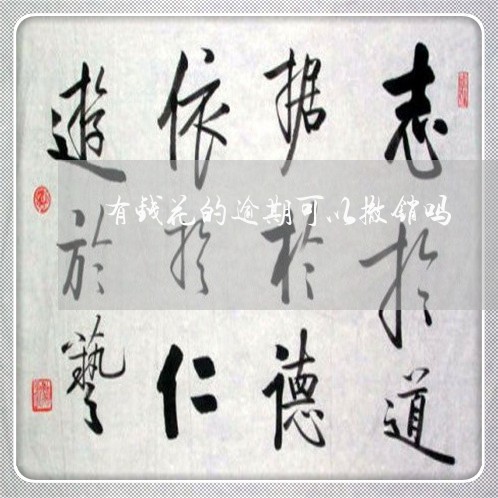 志於道
据於德
依於仁
遊於藝
有钱花的逾期可以撤销吗